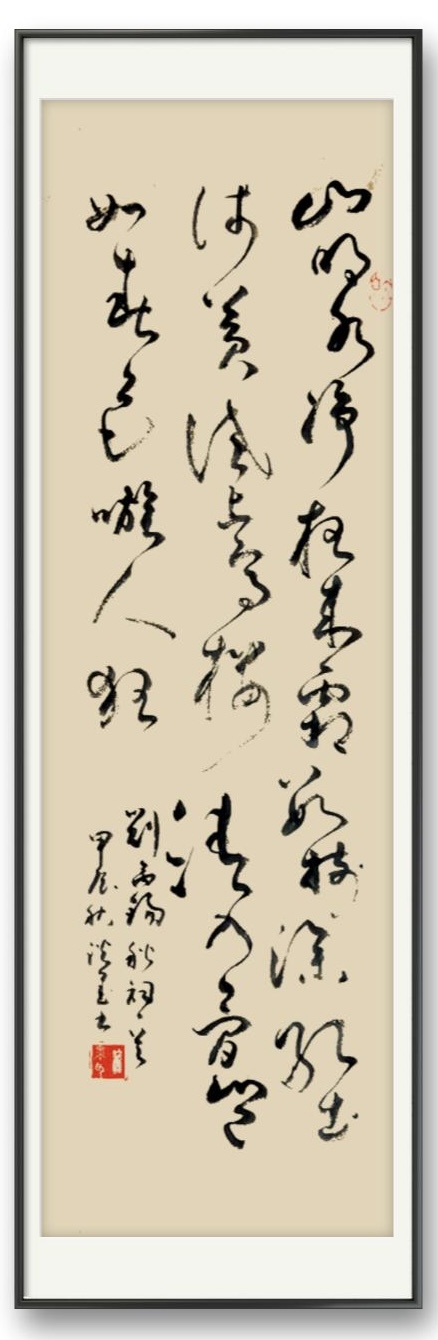 山明水净夜来霜数樹深红出
浅黄试上高楼清入骨岂
如春色嗾人狂
劉禹錫秋词
甲辰秋